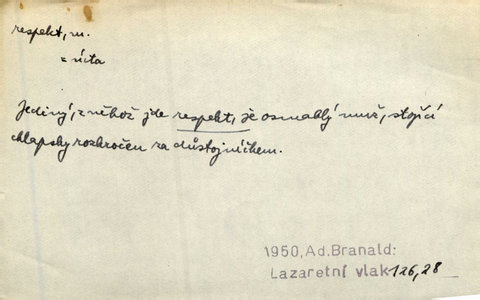 respekt, m.
= úcta
Jediný, z něhož jde respekt, je osmahlý muž, stojící
chlapsky rozkročen za důstojníčkem.
1950, Ad. Branald:
Lazaretní vlak 126,28